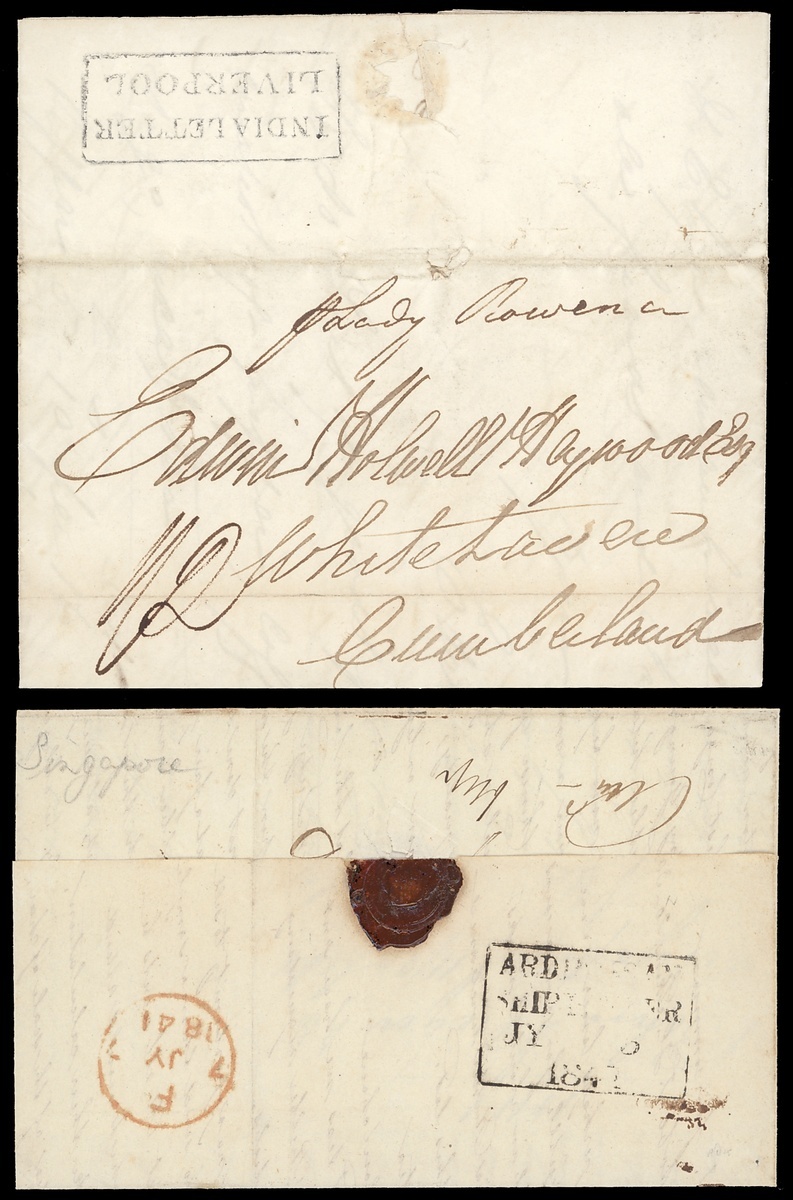 INDIA LETTER
LIVERPOOL
p Lady Rowena
Edwin Holwell Heywood Esq
1/2 Whitehaven
Cumberland
Singapore
ARD
SHIP ER
JY 6
1841
F
7 JY 7
1841